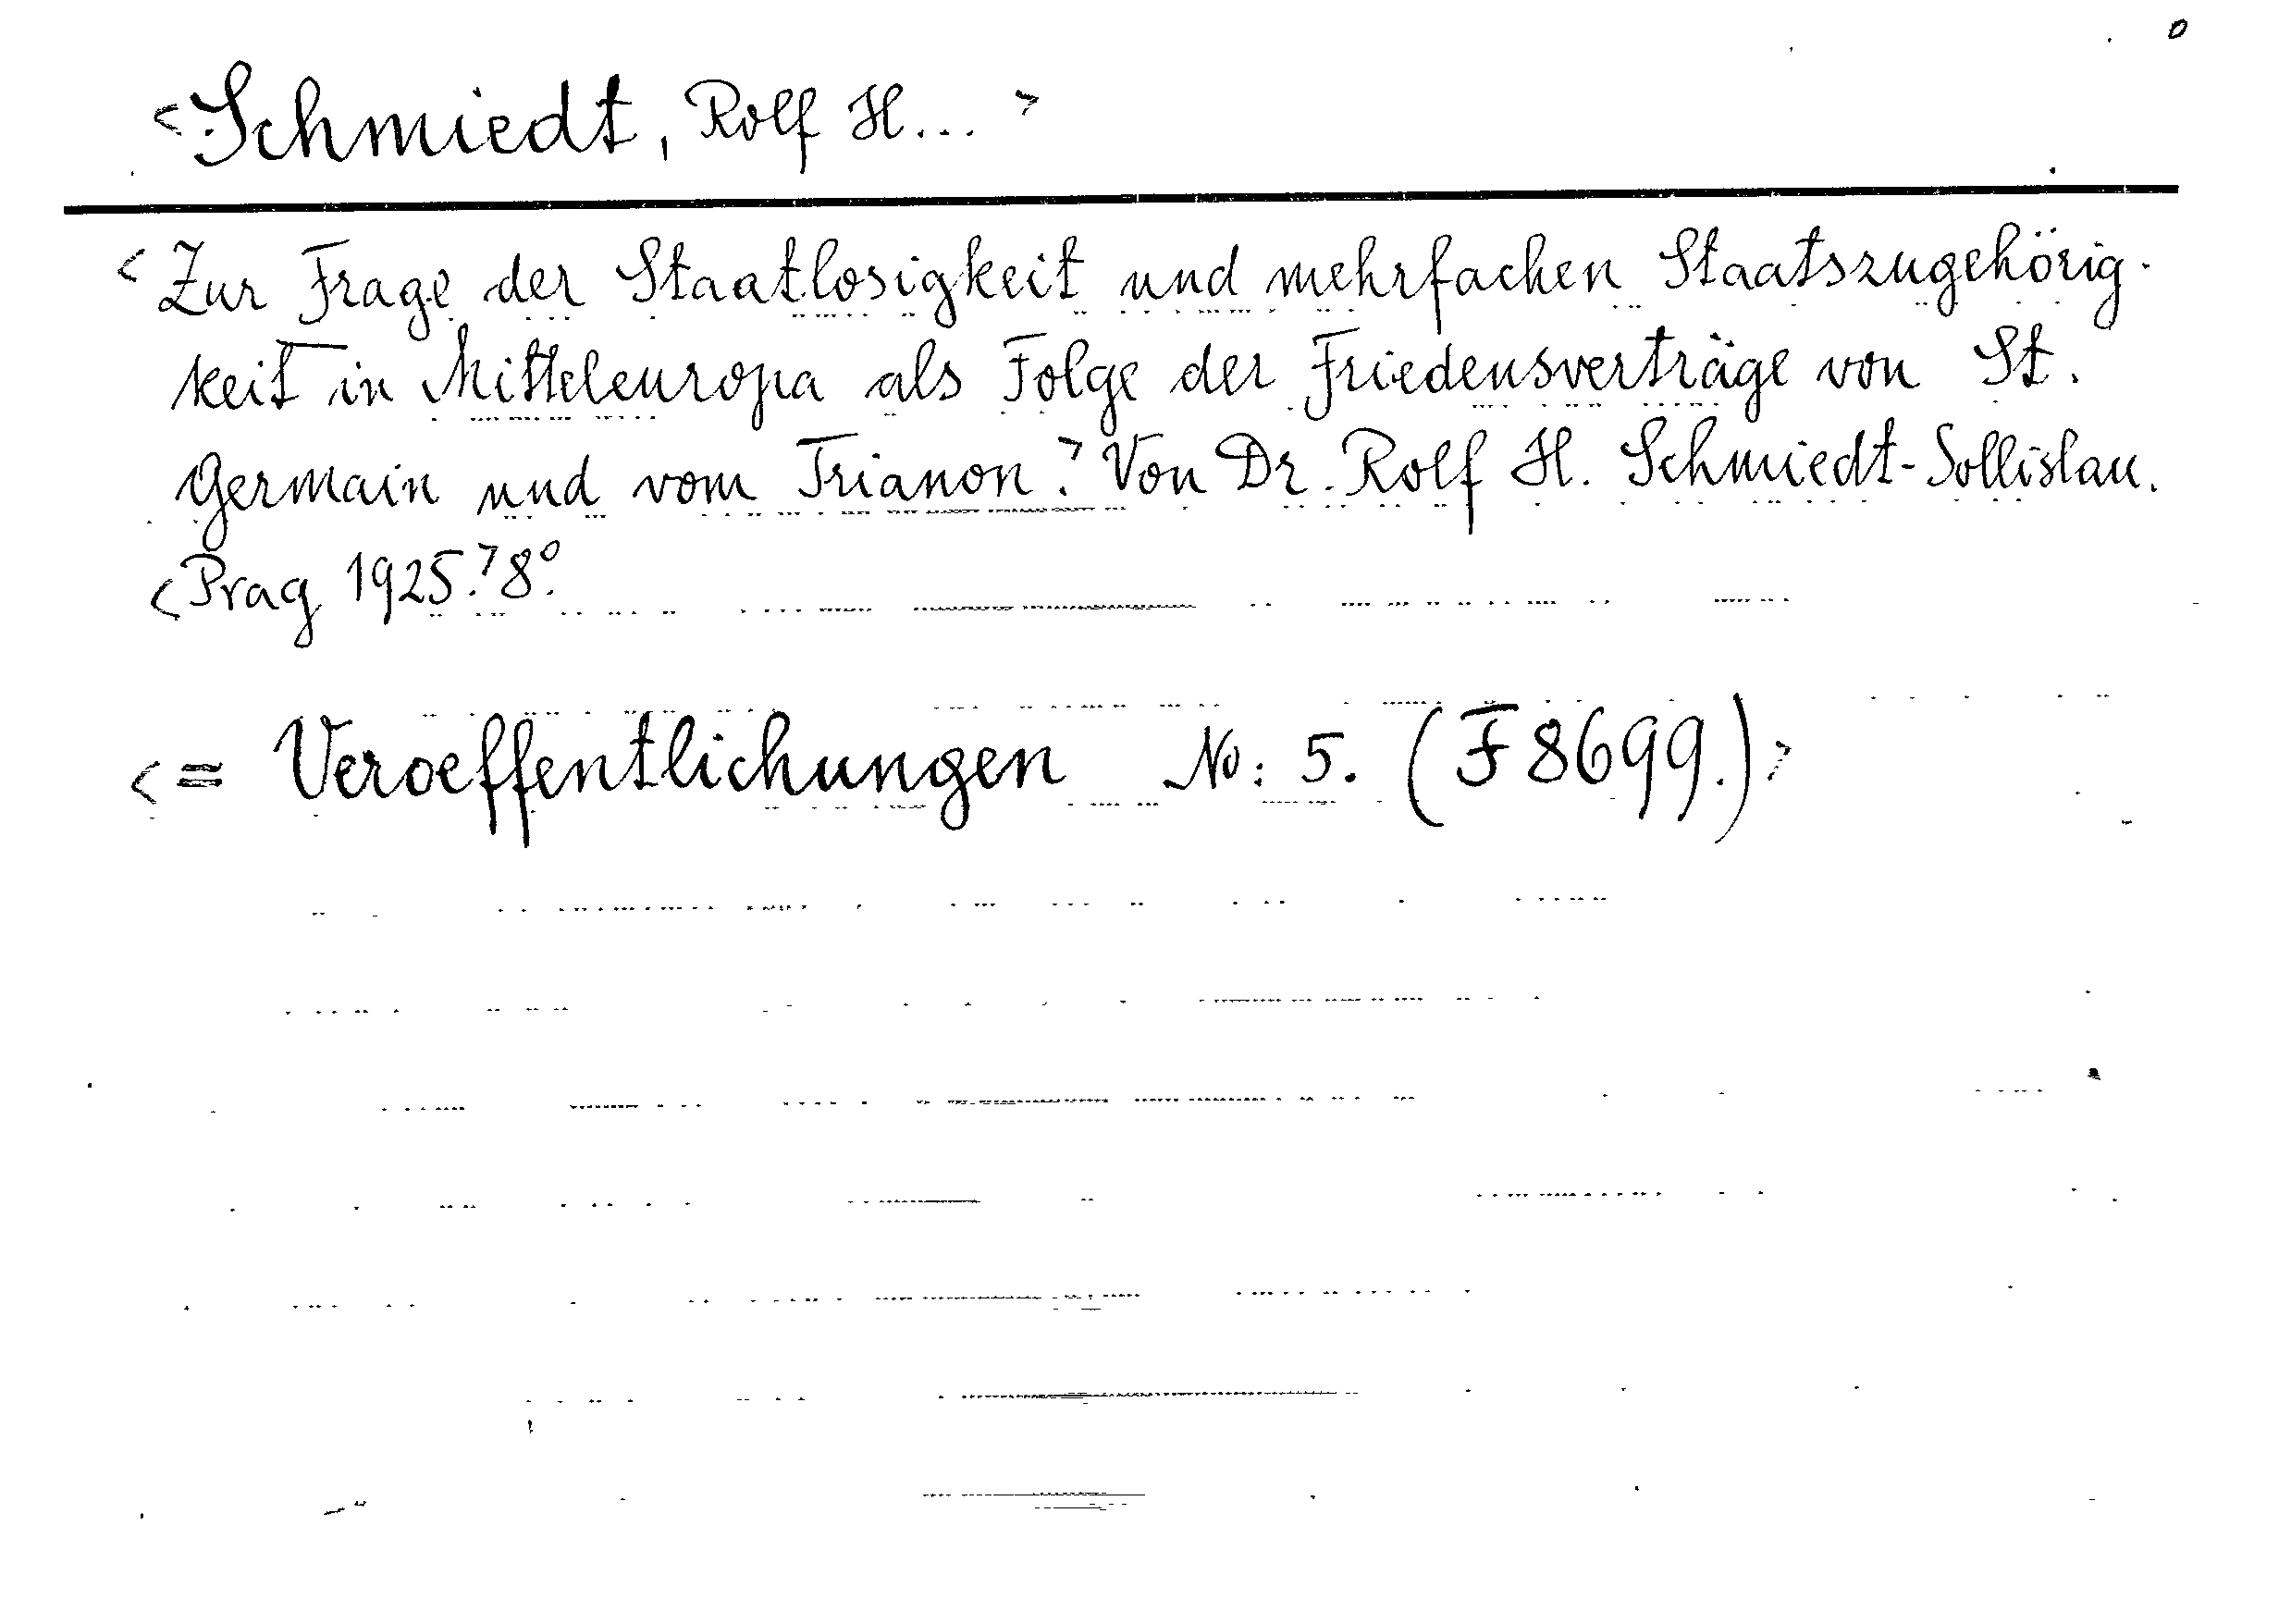 <Schmiedt, Rolf H...>
<Zur Frage der Staatlosigkeit und mehrfachen Staatszugehörig-
keit in Mitteleuropa als Folge der Friedensverträge von St.
Germain und vom Trianon.> Von Dr. Rolf H. Schmiedt-Sollislau.
<Prag 1925.> 8°.
<= Veroeffentlichungen No: 5. (F 8699.)>